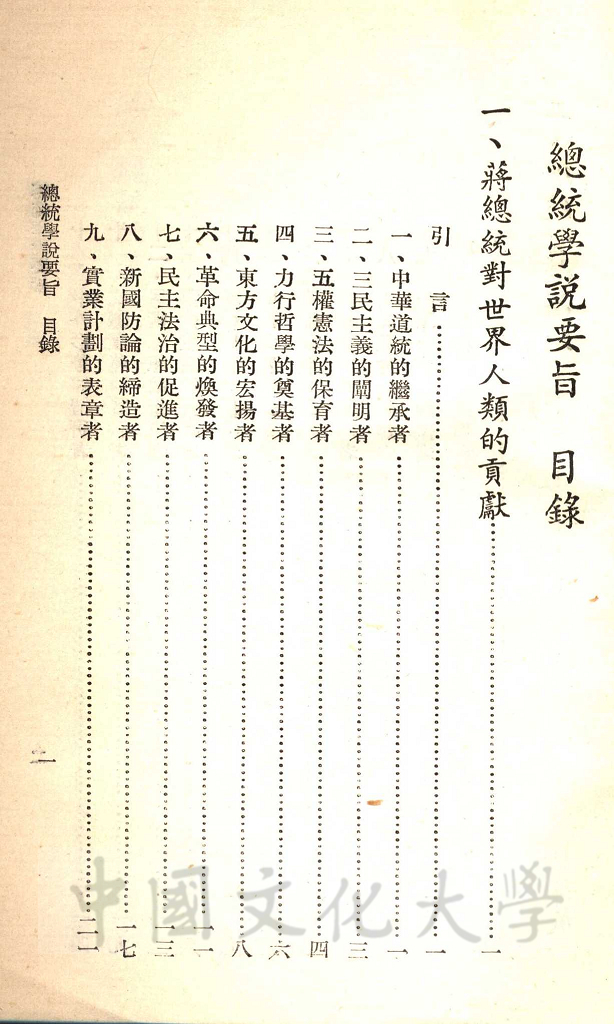 總統學說要旨　目錄
一、蔣總統對世界人類的貢獻……一
引言……一
一、中華道統的繼承者……一
二、三民主義的闡明者……三
三、五權憲法的保育者……四
四、力行哲學的奠基者……六
五、東方文化的宏揚者……八
六、革命典型的煥發者……一一
七、民主法治的促進者……一三
八、新國防論的締造者……一七
九、實業計劃的表章者……二一
總統學說要旨　目錄
一
中國文化大學